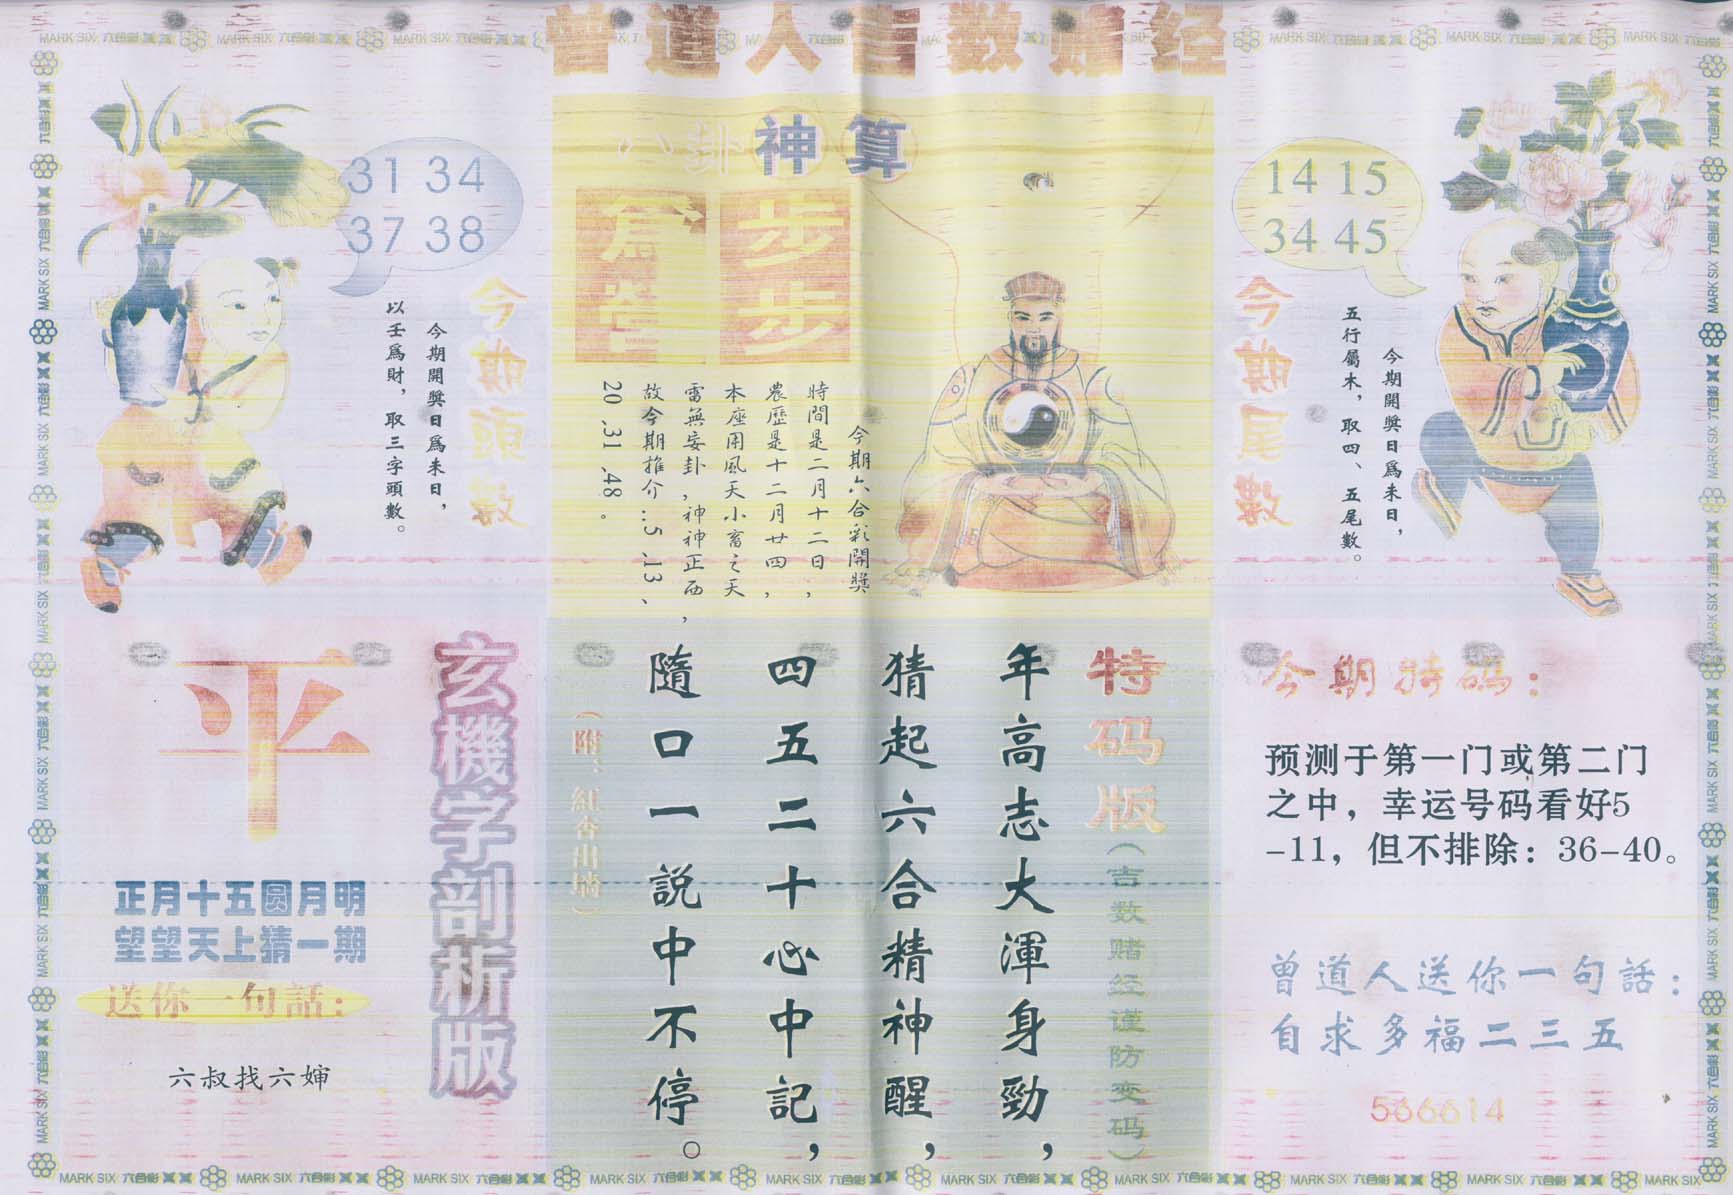 曾道人吉数赌经
八卦神算
步步
爲營
今期六合彩開獎
時間是二月十二日，
農歷是十二月廿四，
本座用風天小畜之天
雷無妄卦，神神正西，
故今期推介…5、13、
20、31、48。
31 34
37 38
今期頭數
今期開獎日爲未日，
以壬爲財，取三字頭數。
14 15
34 45
今期尾數
今期開獎日爲未日，
五行屬木，取四、五尾數。
玄機字剖析版
平
正月十五圆月明
望望天上猜一期
送你一句話：
六叔找六婶
特码版（吉数赌经谨防变码）
年高志大渾身勁，
猜起六合精神醒，
四五二十心中記，
隨口一説中不停。
（附：紅杏出墙）
今期特码：
预测于第一门或第二门
之中，幸运号码看好5
-11，但不排除：36-40。
曾道人送你一句話：
自求多福二三五
566614
MARK SIX 六合彩